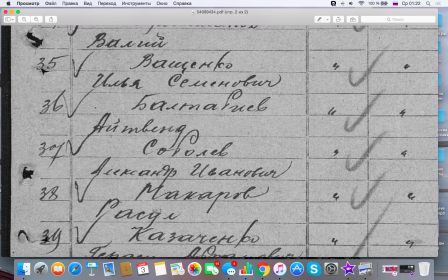 Просмотр Файл Правка Вид Переход Инструменты Окно Справка 100 % Ср 01:22
54089434.pdf (стр. 2 из 2)
Валий
35 Ващенко " "
Илья Семенович
36 Балтагиев " "
37 Соболев " "
Александр Иванович
38 Макаров " "
Расул
39 Казаченко " "